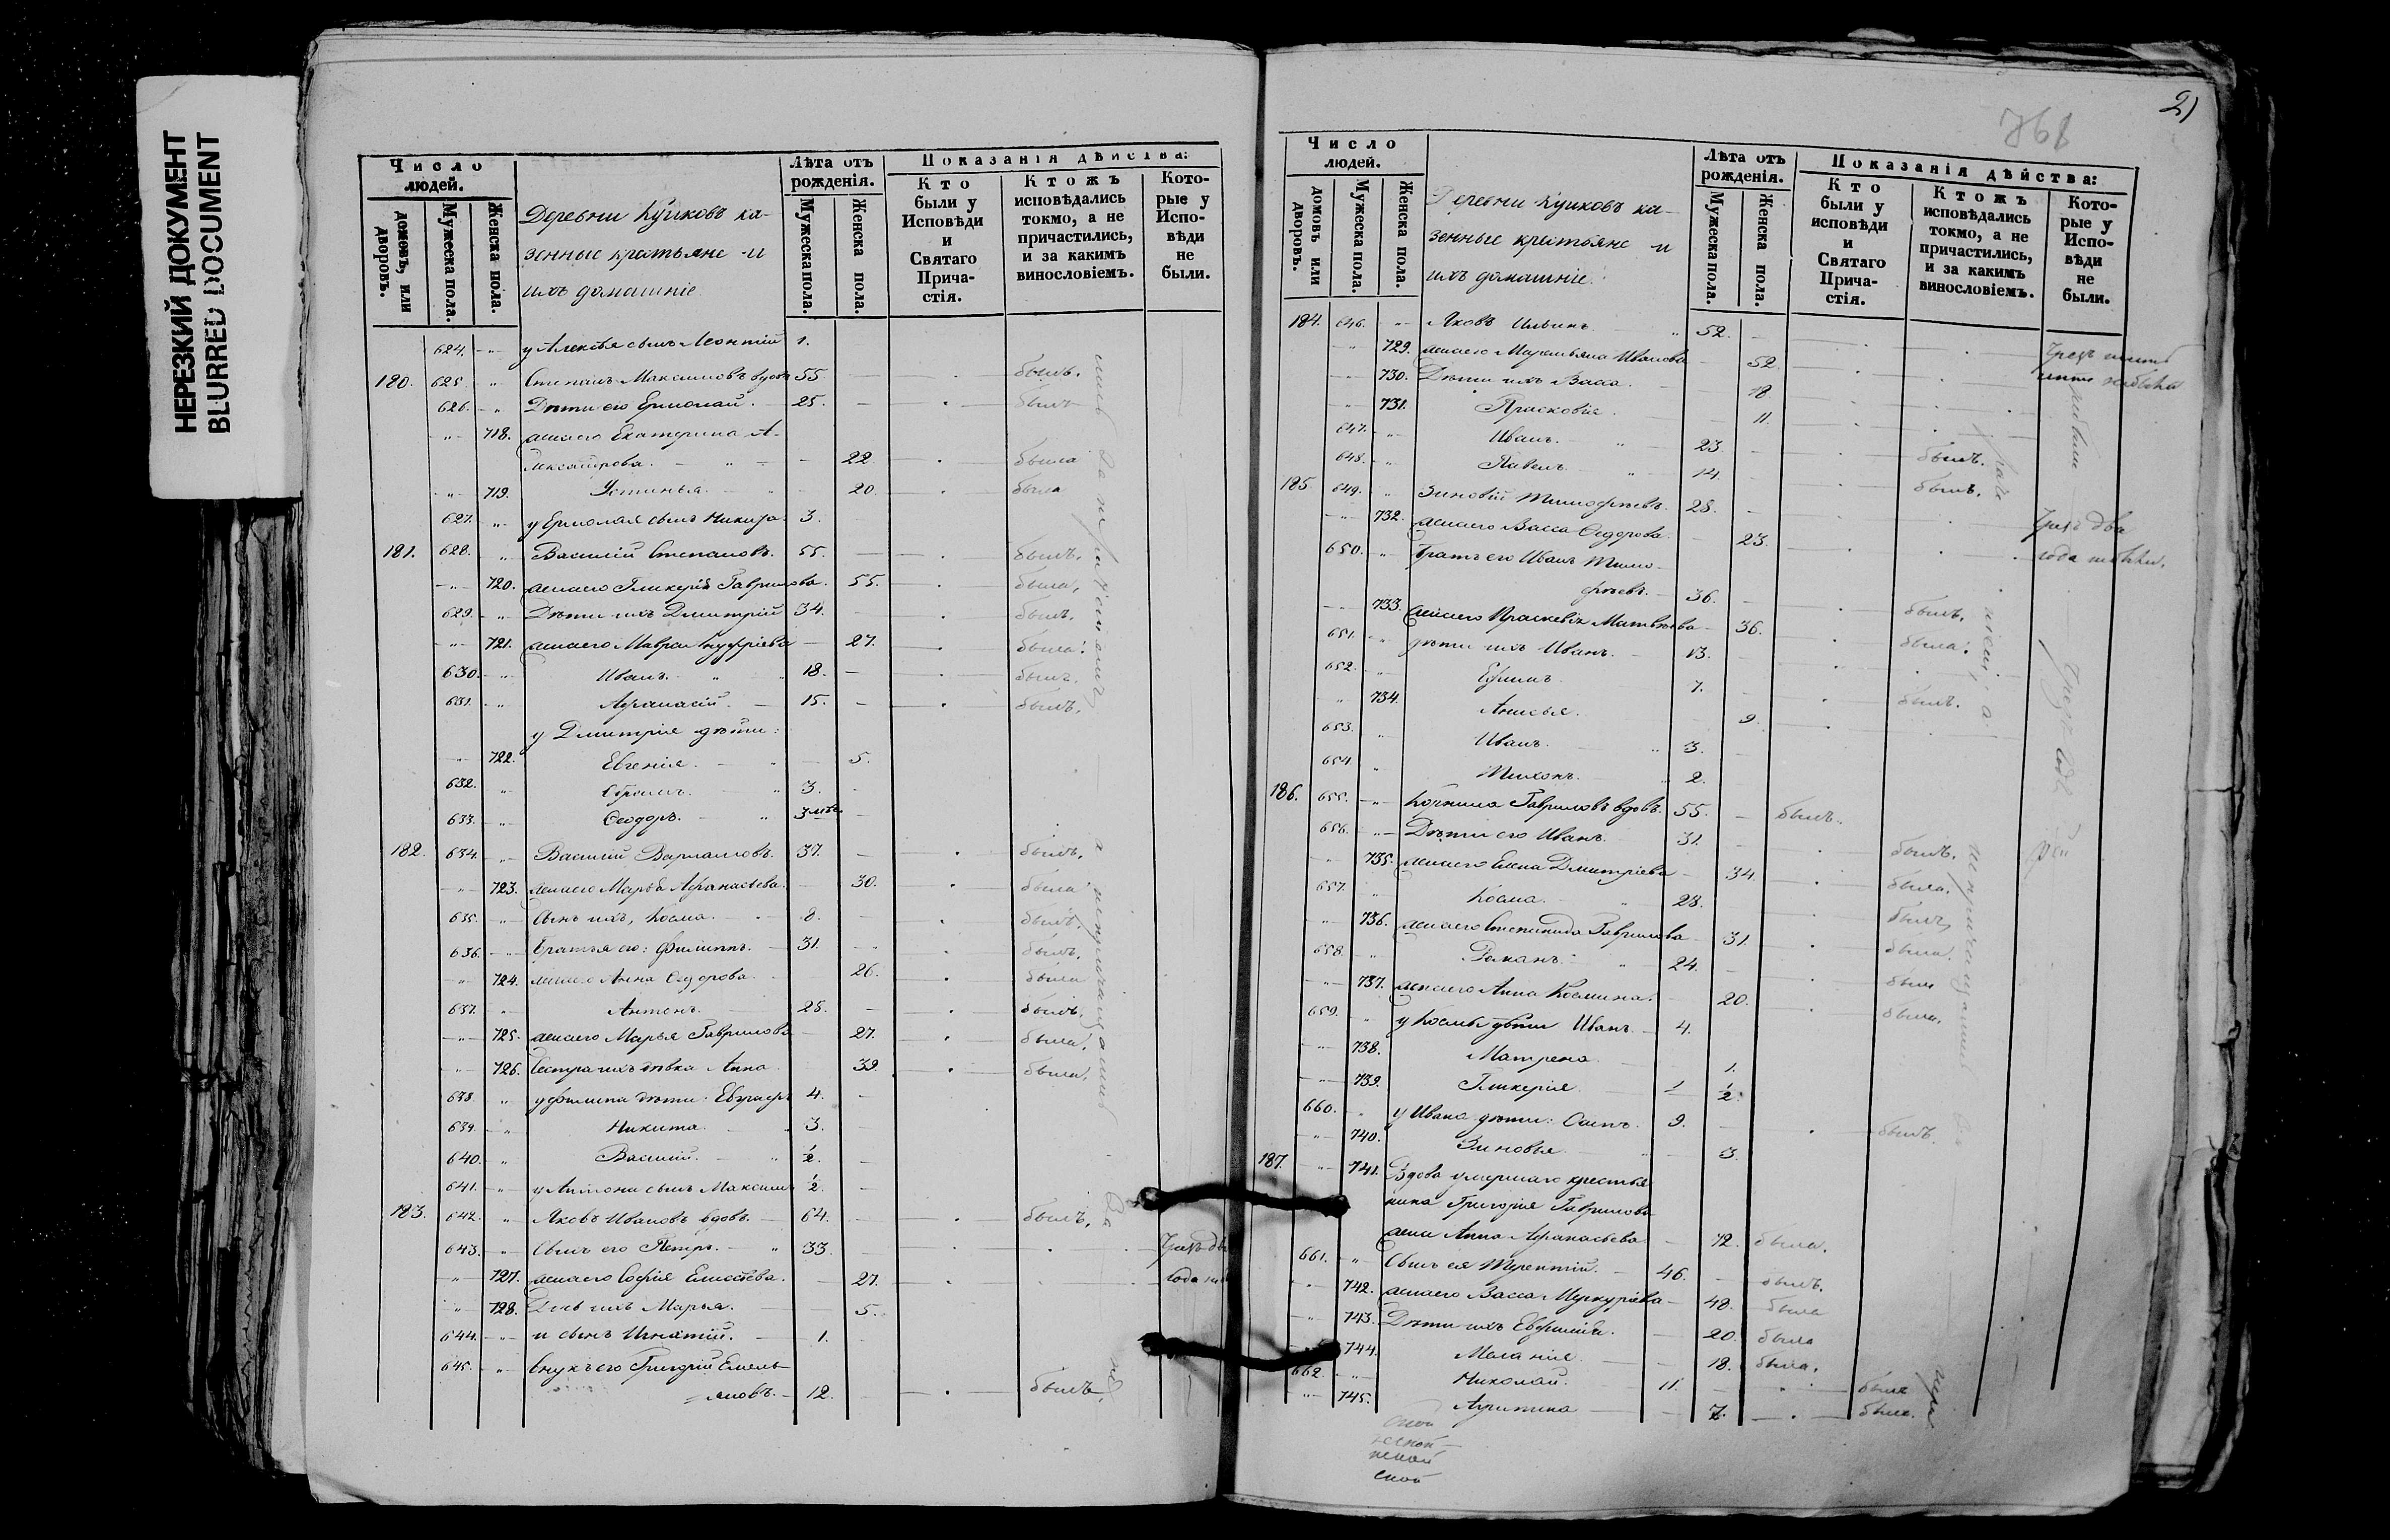 НЕРЕЗКИЙ ДОКУМЕНТ
BLURRED DOCUMENT
Число людей.
домовъ, или дворовъ.
Мужеска пола.
Женска пола.
Деревни Кушковъ ка-
зенные крестьяне и
ихъ домашніе
Лѣта отъ рожденія.
Мужеска пола.
Женска пола.
Показанія дѣйства:
Кто были у Исповѣди и Святаго Прича- стія.
Ктожъ исповѣдались токмо, а не причастились, и за какимъ винословіемъ.
Кото- рые у Испо- вѣди не были.
624. у Алексѣя сынъ Леонтій 1.
180. 625. Степанъ Максимовъ вдовъ 55. былъ.
626. Дѣти его Ермолай. 25. былъ
718. жена его Екатерина А-
лександрова. 22. была
719. Устинья. 20. была
627. у Ермолая сынъ Никита. 3.
181. 628. Василій Степановъ. 55. былъ.
720. жена его Гликерія Гаврилова. 55. была,
629. Дѣти ихъ Дмитрій 34. былъ.
721. жена его Мавра Ануфріева 27. была.
630. Иванъ. 18. былъ.
631. Афанасій. 15. былъ.
у Дмитрія дѣти:
722. Евгенія. 5.
632. Ефимъ. 3.
633. Ѳеодоръ. 3
182. 634. Василій Варламовъ. 37. былъ.
723. жена его Марья Афанасьева. 30. была
635. Сынъ ихъ, Косма. 8. былъ.
636. Братья его: Филиппъ. 31. былъ.
724. жена его Анна Ѳедорова. 26. была
637. Антонъ. 25. былъ.
725. жена его Марья Гаврилова 27. была.
726. Сестра ихъ дѣвка Анна 39. была.
638. у Филипа дѣти: Евграфъ 4.
639. Никита. 3.
640. Василій. ½.
641. у Антона сынъ Максимъ ½.
183. 642. Яковъ Ивановъ вдовъ. 64. былъ.
643. Сынъ его Петръ. 33. Чрезъ два
727. жена его Софія Елисѣева. 27. года
728. Дочь ихъ Марья. 5.
644. и сынъ Игнатій. 1.
645. Внукъ его Григорій Емель-
яновъ. 12. былъ.
21
768
Число людей.
домовъ или дворовъ.
Мужеска пола.
Женска пола.
Деревни Кушковъ ка-
зенные крестьяне и
ихъ домашніе.
Лѣта отъ рожденія.
Мужеска пола.
Женска пола.
Показанія дѣйства:
Кто были у исповѣди и Святаго Прича- стія.
Ктожъ исповѣдались токмо, а не причастились, и за какимъ винословіемъ.
Кото- рые у Испо- вѣди не были.
184. 646. Яковъ Ильинъ 52.
729. жена его Марья Иванова 52.
730. Дѣти ихъ Васса. 18
731. Прасковія. 11.
647. Иванъ. 23. былъ.
648. Павелъ. 14. былъ.
185. 649. Зиновій Тимофѣевъ. 28. Чрезъ два
732. жена его Васса Ѳедорова. 23. года
650. Братъ его Иванъ Тимо-
фѣевъ. 36. былъ.
733. жена его Праскевія Матвѣева 36. была.
651. дѣти ихъ Иванъ. 13.
652. Ефимъ. 7. былъ.
734. Анисья. 9.
653. Иванъ. 3.
654. Тихонъ. 2.
186. 655. Корнила Гавриловъ вдовъ. 55. былъ.
656. Дѣти его Иванъ. 31. былъ.
735. жена его Елена Дмитріева 34. была.
657. Косма. 28. былъ,
736. жена его Степанида Гаврилова 31. была.
658. Романъ. 24. былъ
737. жена его Анна Космина. 20. была.
659. у Космы дѣти Иванъ 4.
738. Матрена 1.
739. Гликерія. ½.
660. у Ивана дѣти: Осипъ. 9. былъ.
740. Зиновья. 3.
187. 741. Вдова умершаго крестья
нина Григорія Гаврилова
жена Анна Афанасьева 72. была.
661. Сынъ ея Терентій. 46. былъ.
742. жена его Васса Меркуріева 48. была
743. Дѣти ихъ Евфимія. 20. была
744. Меланія. 18. была.
662. Николай. 11. былъ
745. Агрипина 7. была.